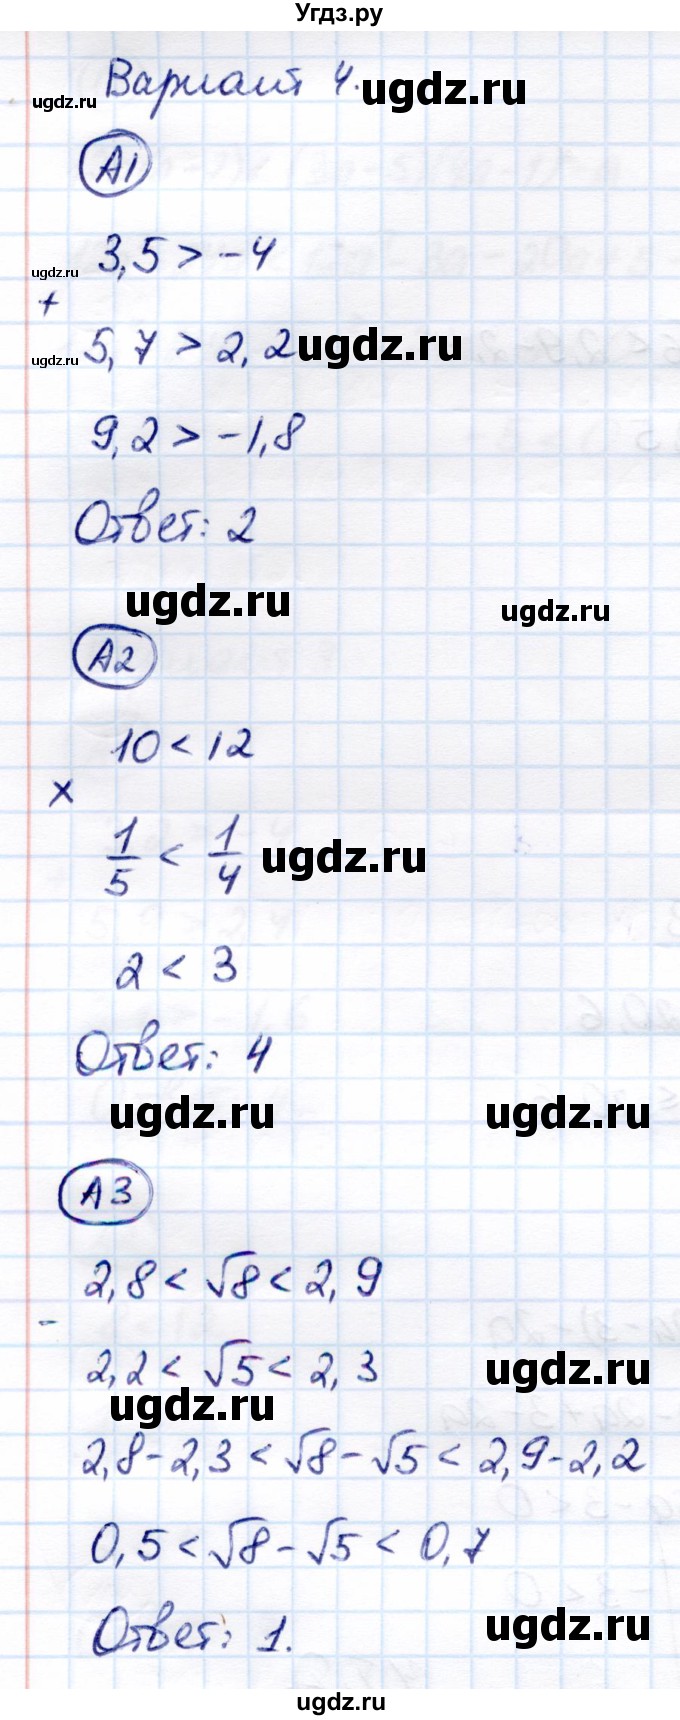 Угдз.ру
Вариант 4.
ugdz.ru
ugdz.ru
А1
3,5 > -4
ugdz.ru
+
ugdz.ru
5,7 > 2,2
ugdz.ru
9,2 > -1,8
Ответ: 2
ugdz.ru
ugdz.ru
А2
10 < 12
×
1/5 < 1/4
ugdz.ru
2 < 3
Ответ: 4
ugdz.ru
ugdz.ru
А3
2,8 < √8 < 2,9
-
2,2 < √5 < 2,3
ugdz.ru
ugdz.ru
2,8-2,3 < √8-√5 < 2,9-2,2
0,5 < √8-√5 < 0,7
Ответ: 1.
ugdz.ru
ugdz.ru